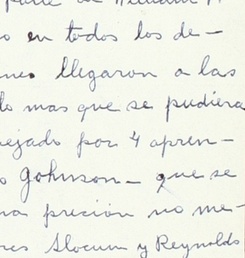 o en todos los de-
nes llegaron a las
lo mas que se pudiera
ejado por 4 apren-
o Johnson - que se
na precion no me-
res Slocum y Reynolds